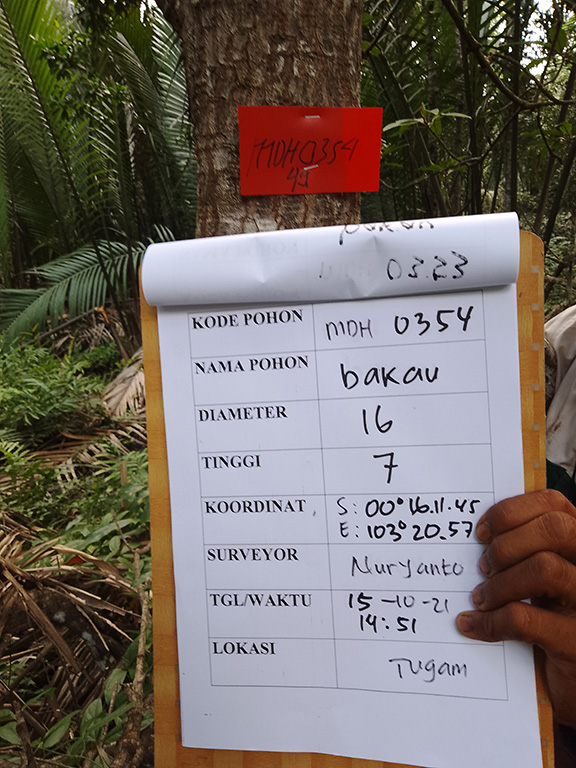 MDH 0354
45
03.23
KODE POHON MDH 0354
NAMA POHON bakau
DIAMETER 16
TINGGI 7
KOORDINAT S: 00° 16.11.45
E: 103° 20.57
SURVEYOR Nuryanto
TGL/WAKTU 15-10-21
14:51
LOKASI Tugam